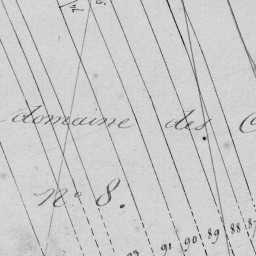 domaine des
No 8.
91 90 89 88